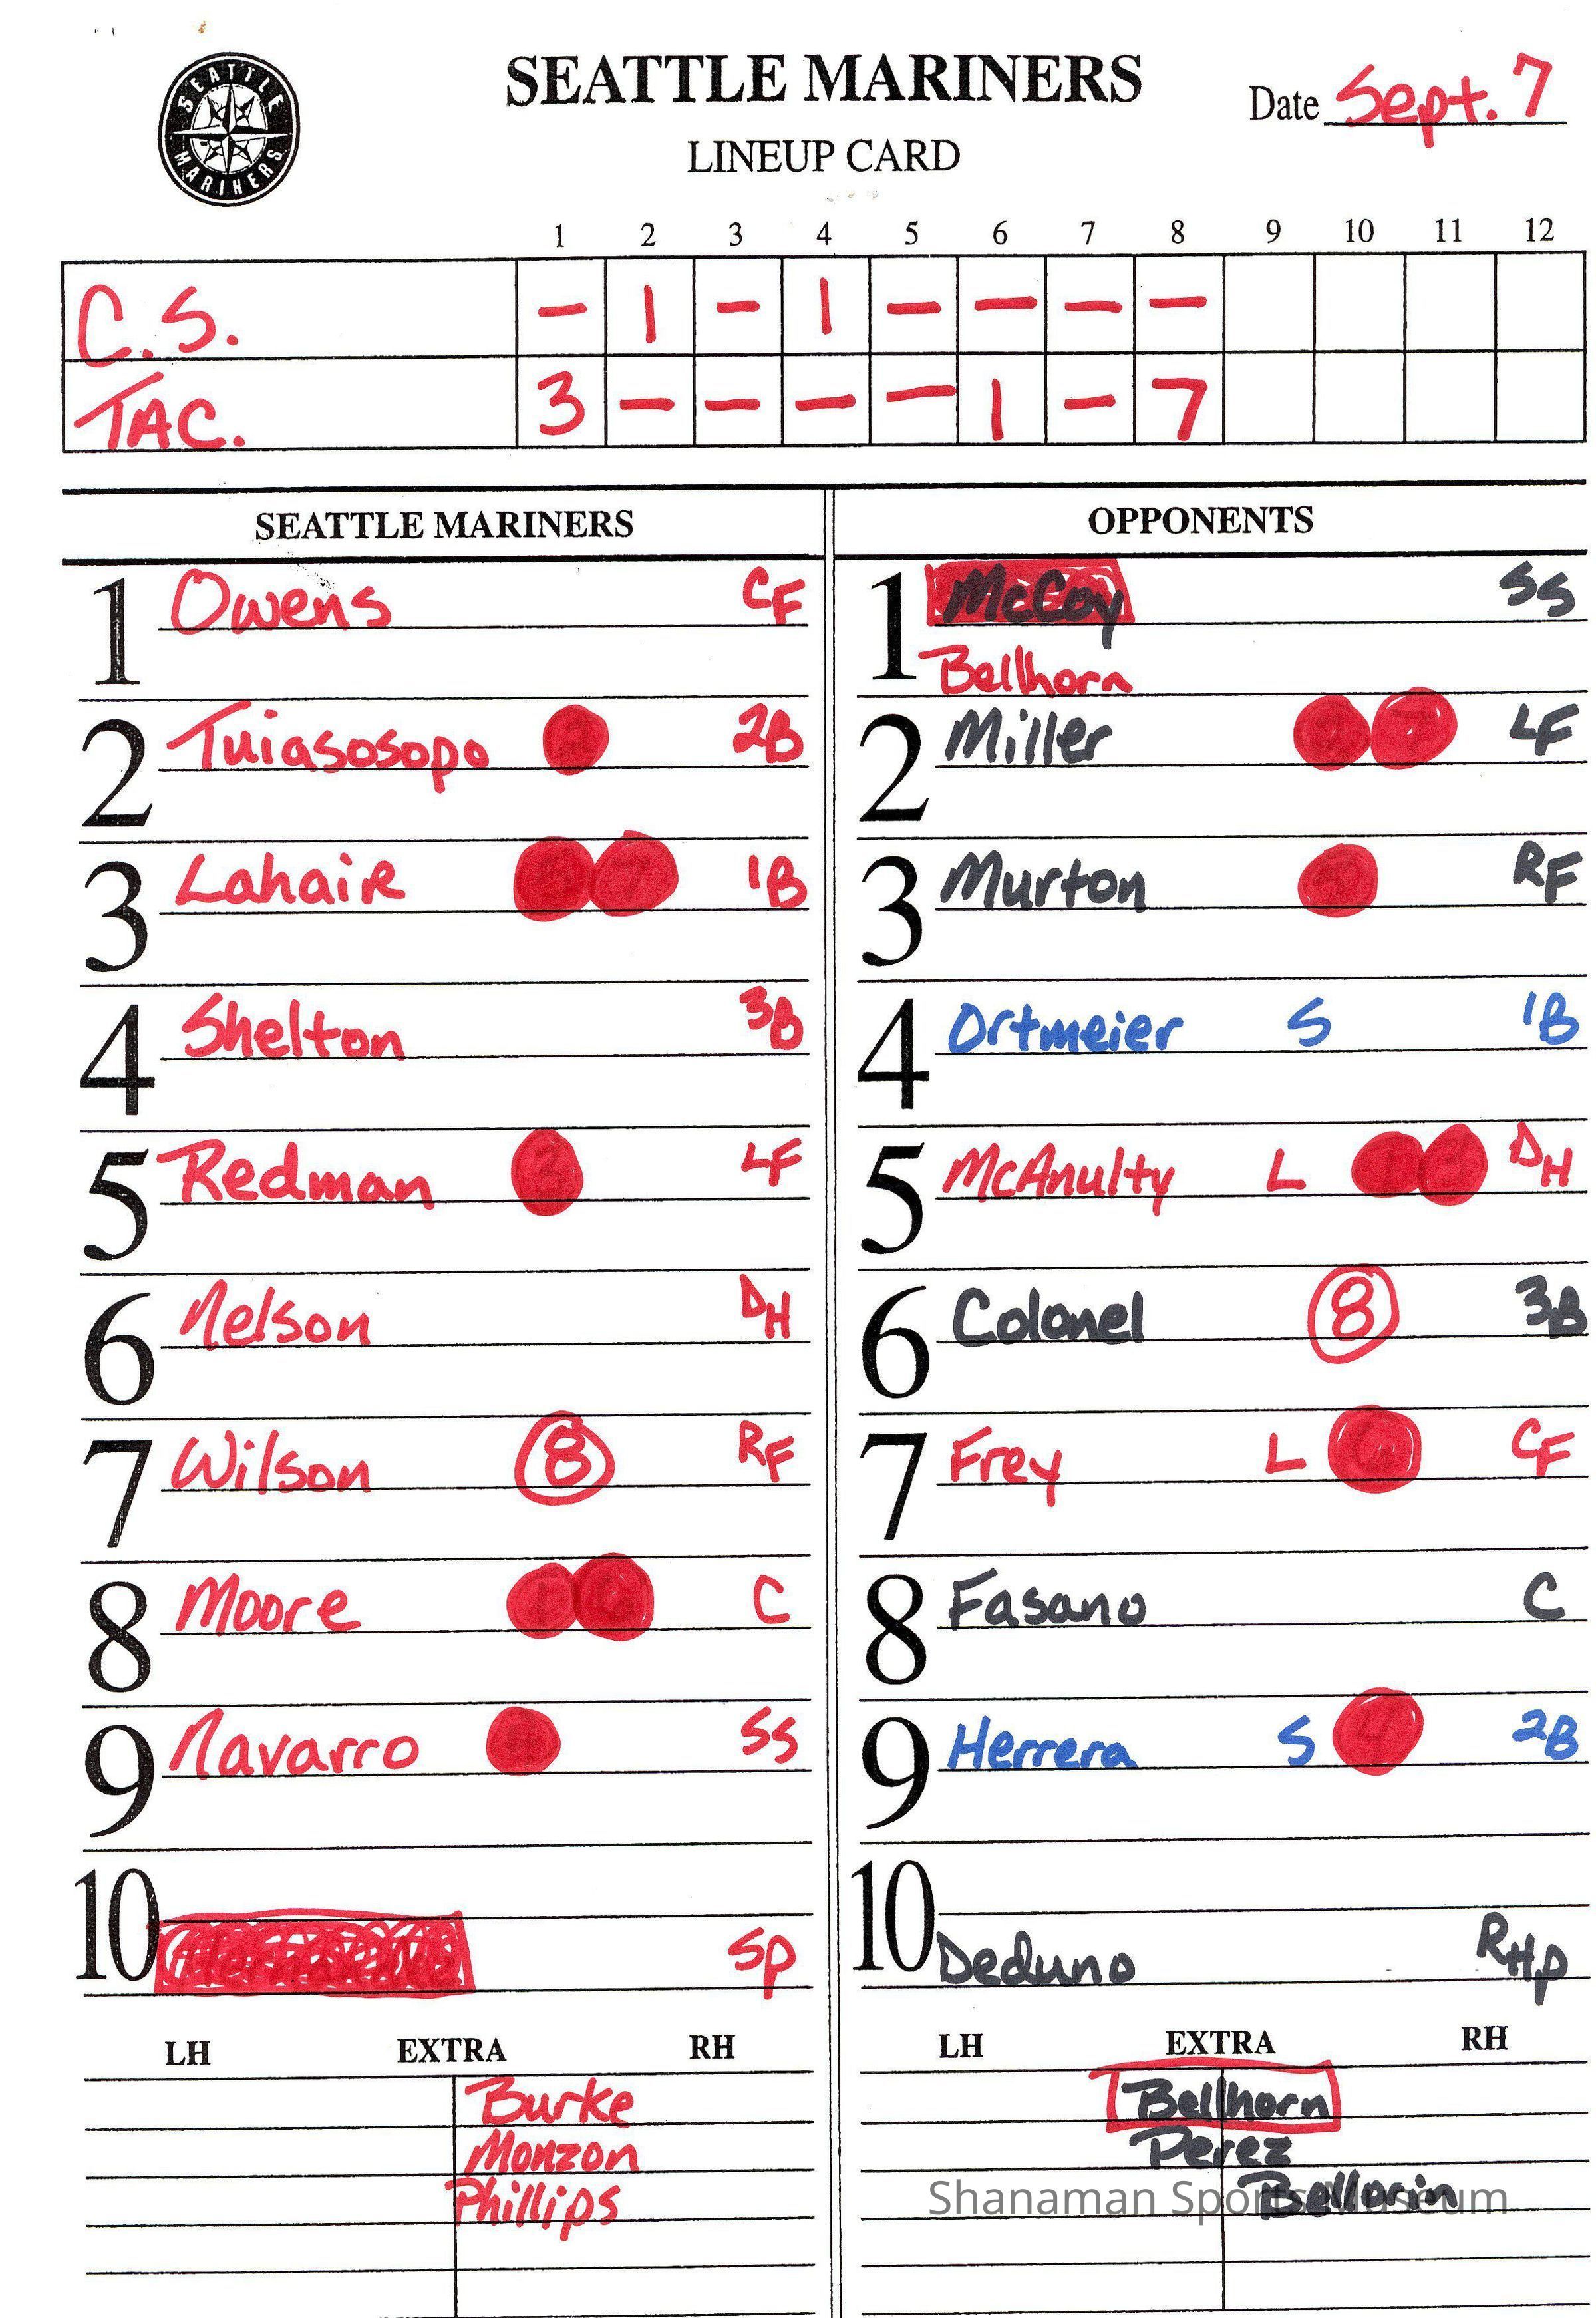 SEATTLE MARINERS
SEATTLE MARINERS
Date Sept. 7
LINEUP CARD
1 2 3 4 5 6 7 8 9 10 11 12
C.S. – 1 – 1 – – – –
TAC. 3 – – – – 1 – 7
SEATTLE MARINERS
1 Owens CF
2 Tuiasosopo 2B
3 Lahair 7 1B
4 Shelton 3B
5 Redman 3 LF
6 Nelson DH
7 Wilson 8 RF
8 Moore C
9 Navarro SS
10 SP
LH EXTRA RH
Burke
Monzon
Phillips
OPPONENTS
1 McCoy SS
Bellhorn
2 Miller 7 LF
3 Murton RF
4 Ortmeier S 1B
5 McAnulty L DH
6 Colonel 8 3B
7 Frey L 6 CF
8 Fasano C
9 Herrera S 4 2B
10 Deduno RHP
LH EXTRA RH
Bellhorn
Perez
Bellorin
Shanaman Sports Museum